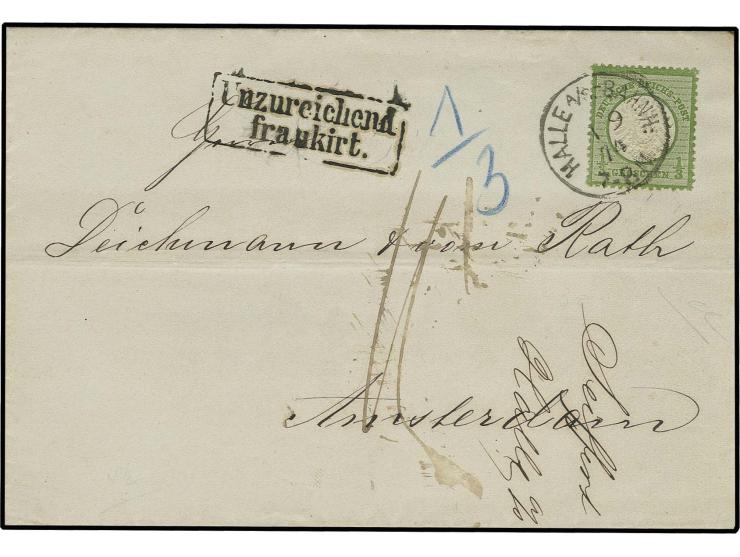 Unzureichend
frankirt.
1/3
HALLE
9
DEUTSCHE REICHS-POST
1/3
GROSCHEN
Deichmann & vom Rath
Amsterdam
Halle